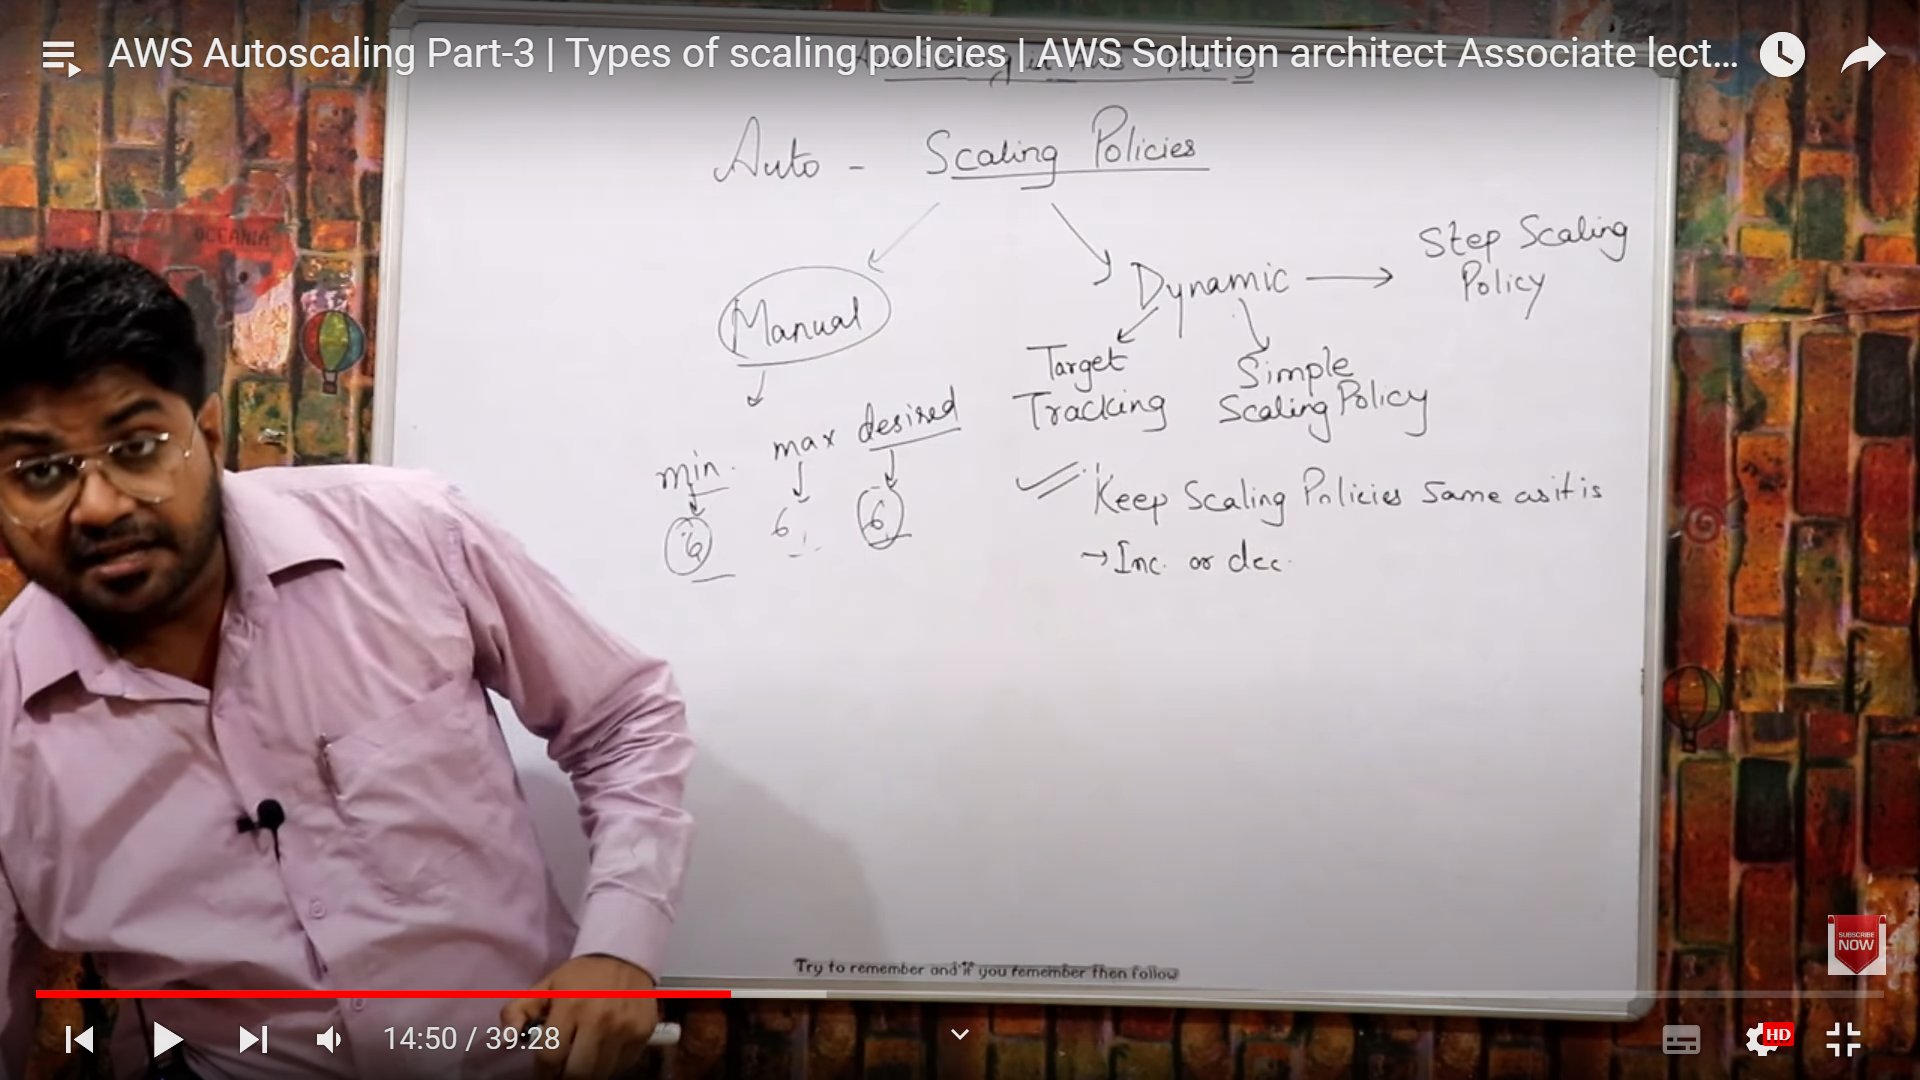 AWS Autoscaling Part-3 | Types of scaling policies | AWS Solution architect Associate lect...
Auto - Scaling Policies
Manual
Dynamic
Step Scaling
Policy
Target
Tracking
Simple
Scaling Policy
min.
max
desired
6
6
6
Keep Scaling Policies Same as it is
→ Inc. or dec.
OCEANIA
Try to remember and if you remember then follow
SUBSCRIBE
NOW
14:50 / 39:28
HD